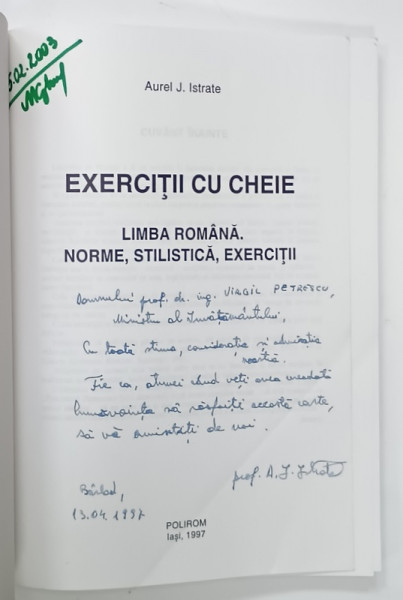 5.02.2003
Aurel J. Istrate
EXERCIŢII CU CHEIE
LIMBA ROMÂNĂ.
NORME, STILISTICĂ, EXERCIŢII
Domnului prof. dr. ing. VIRGIL PETRESCU,
Ministru al Învăţământului,
Cu toată stima, consideraţia şi admiraţia
noastră.
Fie ca, atunci când veţi avea vreodată
bunăvoinţa să răsfoiţi această carte,
să vă amintiţi de noi.
prof. A. J. Istrate
Bârlad,
13.04.1997
POLIROM
Iaşi, 1997